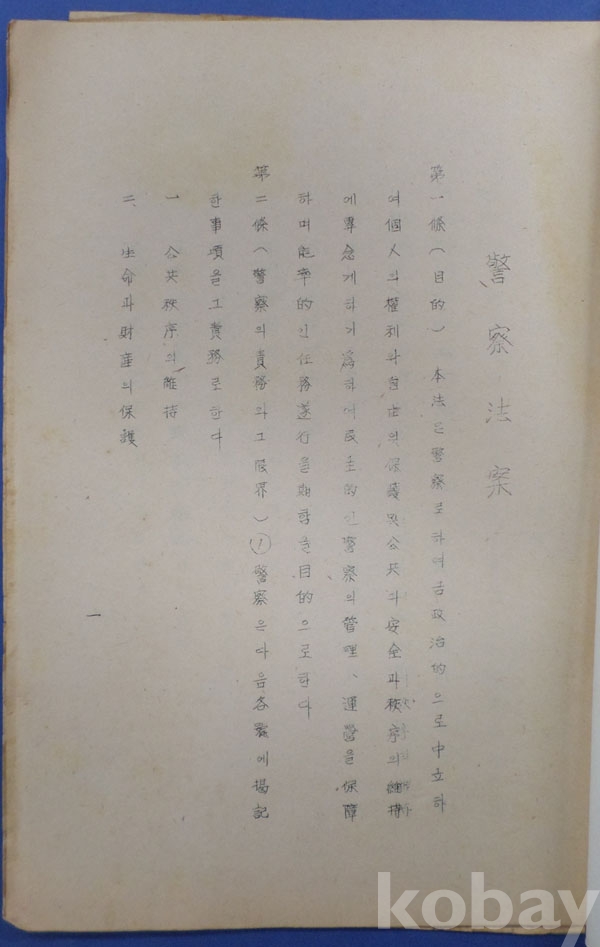 警察法案
第一條(目的) 本法은警察로하여금政治的으로中立하
여個人의權利와自由의保護및公共의安全과秩序의維持
에專念게하기爲하여民主的인警察의管理、運營을保障
하며能率的인任務遂行을期함을目的으로한다
第二條(警察의責務와그限界)①警察은다음各號에揭記
한事項을그責務로한다
一 公共秩序의維持
二、生命과財產의保護
一
kobay